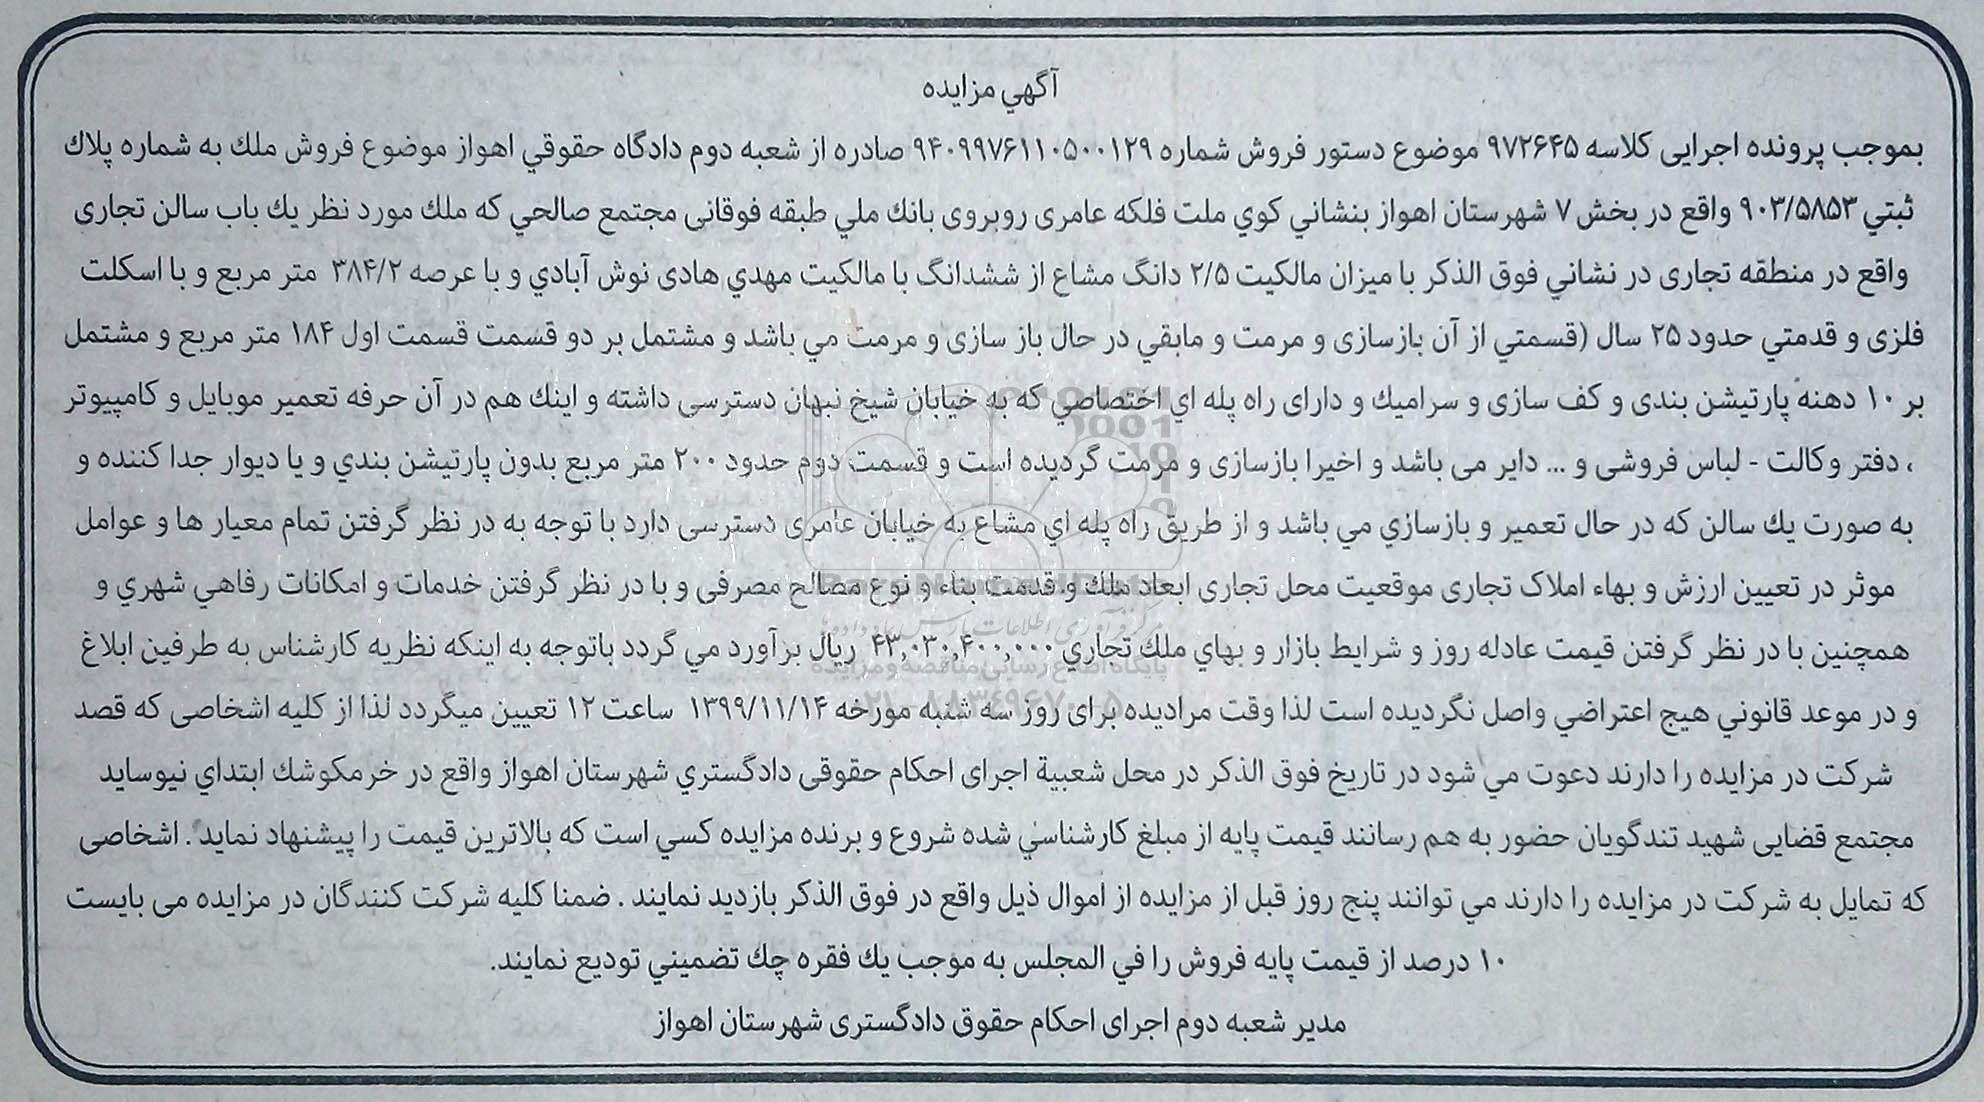 آگهي مزایده
بموجب پرونده اجرایی کلاسه ۹۷۲۶۴۵ موضوع دستور فروش شماره ۹۴۰۹۹۷۶۱۱۰۵۰۰۱۲۹ صادره از شعبه دوم دادگاه حقوقي اهواز موضوع فروش ملك به شماره پلاك
ثبتي ۹۰۳/۵۸۵۳ واقع در بخش ۷ شهرستان اهواز بنشاني كوي ملت فلکه عامری روبروی بانك ملي طبقه فوقانی مجتمع صالحي که ملك مورد نظر يك باب سالن تجاری
واقع در منطقه تجاری در نشاني فوق الذکر با میزان مالکیت ۲/۵ دانگ مشاع از ششدانگ با مالکیت مهدي هادی نوش آبادي و با عرصه ۳۸۴/۲ متر مربع و با اسکلت
فلزی و قدمتي حدود ۲۵ سال (قسمتي از آن بازسازی و مرمت و مابقي در حال باز سازی و مرمت مي باشد و مشتمل بر دو قسمت قسمت اول ۱۸۴ متر مربع و مشتمل
بر ۱۰ دهنه پارتیشن بندی و کف سازی و سرامیك و دارای راه پله اي اختصاصي که به خیابان شیخ نبهان دسترسی داشته و اینك هم در آن حرفه تعمیر موبایل و کامپیوتر
، دفتر وکالت - لباس فروشی و ... دایر می باشد و اخیرا بازسازی و مرمت گردیده است و قسمت دوم حدود ۲۰۰ متر مربع بدون پارتیشن بندي و یا دیوار جدا کننده و
به صورت يك سالن که در حال تعمیر و بازسازي مي باشد و از طریق راه پله اي مشاع به خیابان عامری دسترسی دارد با توجه به در نظر گرفتن تمام معیار ها و عوامل
موثر در تعیین ارزش و بهاء املاک تجاری موقعیت محل تجاری ابعاد ملك و قدمت بناء و نوع مصالح مصرفی و با در نظر گرفتن خدمات و امکانات رفاهي شهري و
همچنین با در نظر گرفتن قیمت عادله روز و شرایط بازار و بهاي ملك تجاري ۴۳,۰۳۰,۴۰۰,۰۰۰ ریال برآورد مي گردد باتوجه به اینکه نظریه کارشناس به طرفین ابلاغ
و در موعد قانوني هیچ اعتراضي واصل نگردیده است لذا وقت مرادیده برای روز سه شنبه مورخه ۱۳۹۹/۱۱/۱۴ ساعت ۱۲ تعیین میگردد لذا از کلیه اشخاصی که قصد
شرکت در مزایده را دارند دعوت مي شود در تاریخ فوق الذکر در محل شعبیة اجرای احکام حقوقی دادگستري شهرستان اهواز واقع در خرمکوشك ابتداي نیوساید
مجتمع قضایی شهید تندگویان حضور به هم رسانند قیمت پایه از مبلغ کارشناسي شده شروع و برنده مزایده کسي است که بالاترین قیمت را پیشنهاد نماید . اشخاصی
که تمایل به شرکت در مزایده را دارند مي توانند پنج روز قبل از مزایده از اموال ذیل واقع در فوق الذکر بازدید نمایند . ضمنا کلیه شرکت کنندگان در مزایده می بایست
۱۰ درصد از قیمت پایه فروش را في المجلس به موجب يك فقره چك تضمیني تودیع نمایند.
مدیر شعبه دوم اجرای احکام حقوق دادگستری شهرستان اهواز
پایگاه اطلاع رسانی مناقصه و مزایده